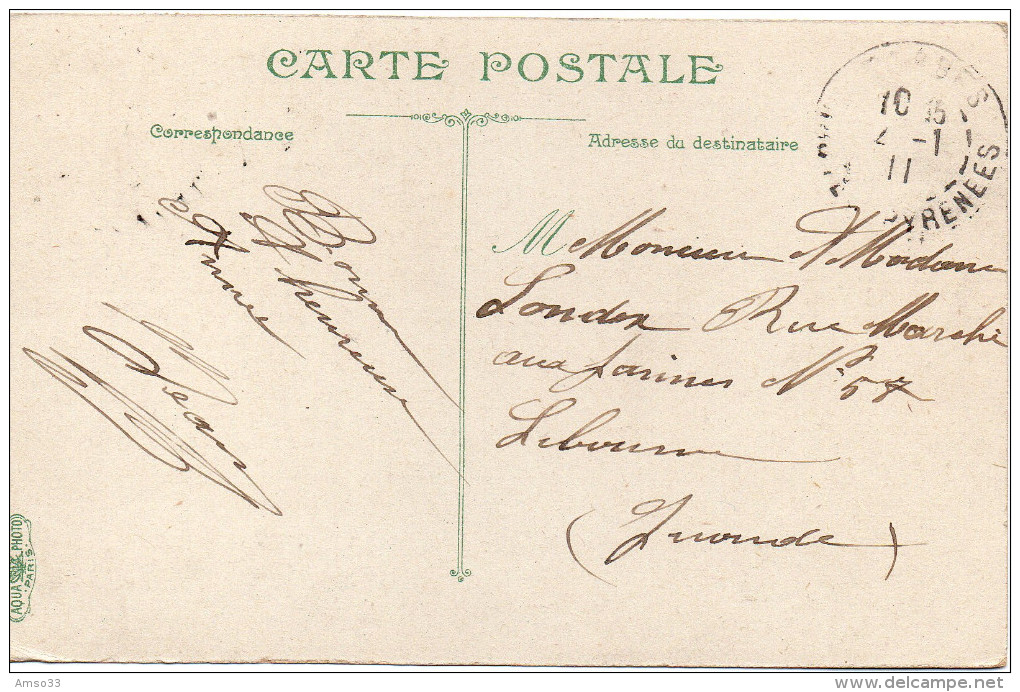 CARTE POSTALE
Correspondance
Adresse du destinataire
10 15
2 -1
11
PYRENEES
Bonne
& heureuse
Année
Jean
M Monsieur & Madame
Londex Rue Marché
aux farines N° 57
Libourne
(Gironde)
AQUA PHOTO
PARIS
Amso33
www.delcampe.net